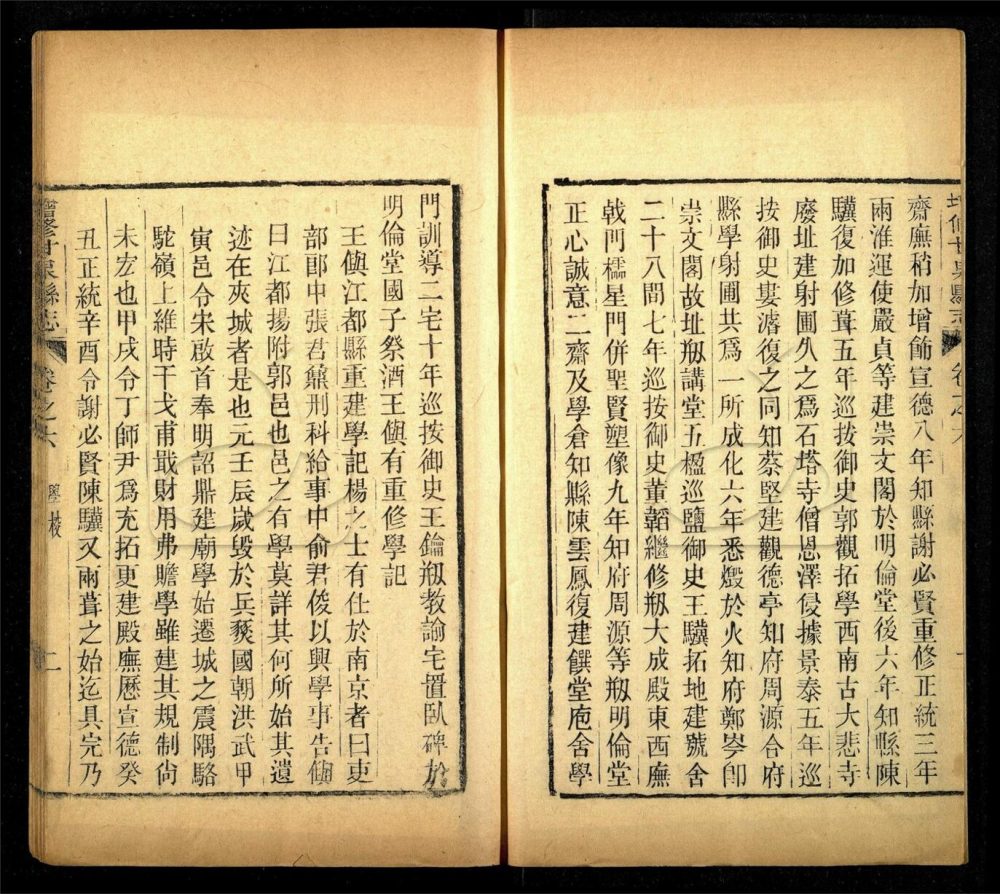 齋廡稍加增飾宣德八年知縣謝必賢重修正統三年
兩淮運使嚴貞等建崇文閣於明倫堂後六年知縣陳
驥復加修葺五年巡按御史郭觀拓學西南古大悲寺
廢址建射圃久之爲石塔寺僧恩澤侵據景泰五年巡
按御史婁濬復之同知蔡堅建觀德亭知府周源合府
縣學射圃共爲一所成化六年悉燬於火知府鄭岑卽
崇文閣故址剏講堂五楹巡鹽御史王驥拓地建號舍
二十八間七年巡按御史董韜繼修剏大成殿東西廡
戟門櫺星門併聖賢塑像九年知府周源等剏明倫堂
正心誠意二齋及學倉知縣陳雲鳳復建饌堂庖舍學
增修甘泉縣志 卷之六 學校 二
門訓導二宅十年巡按御史王鑰剏教諭宅置臥碑於
明倫堂國子祭酒王㒜有重修學記
王㒜江都縣重建學記楊之士有仕於南京者曰吏
部郎中張君鼐刑科給事中俞君俊以興學事告㒜
曰江都揚附郭邑也邑之有學莫詳其何所始其遺
迹在夾城者是也元壬辰歲毀於兵燹國朝洪武甲
寅邑令朱啟首奉明詔鼎建廟學始遷城之震隅駱
駝嶺上維時干戈甫戢財用弗贍學雖建其規制尙
未宏也甲戌令丁師尹爲充拓更建殿廡歷宣德癸
丑正統辛酉令謝必賢陳驥又兩葺之始迄具完乃